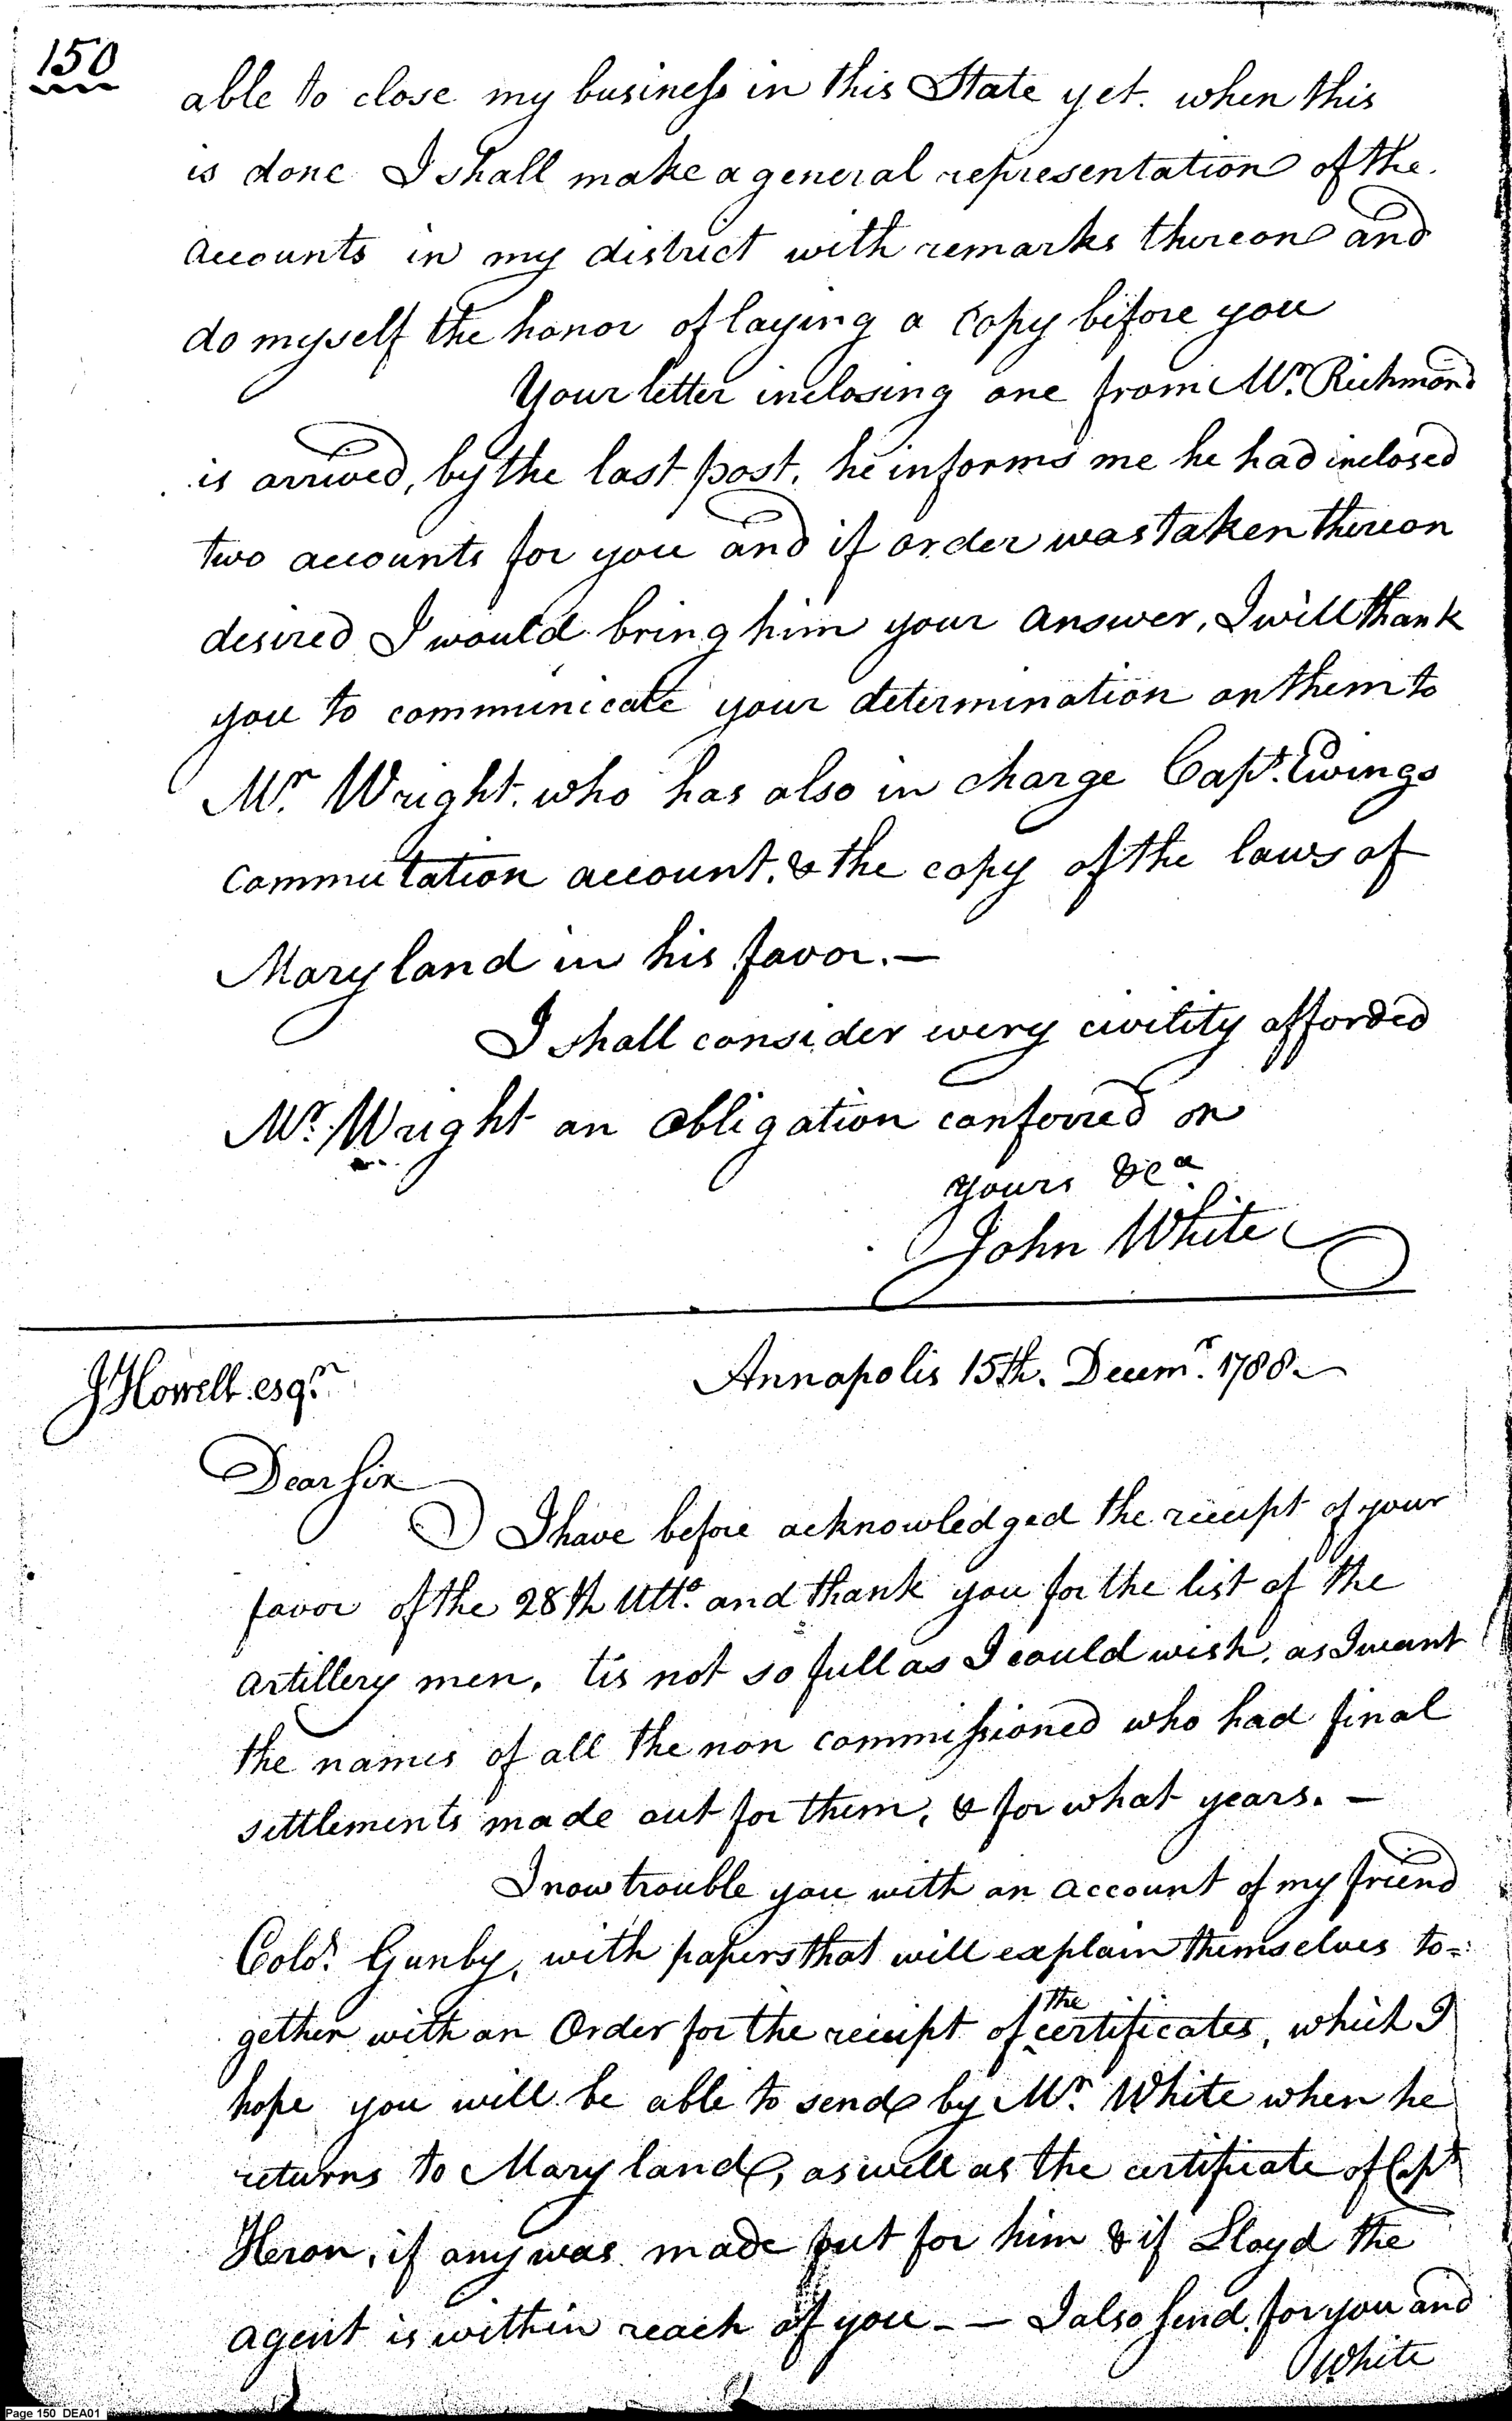 150
able to close my business in this State yet. when this
is done I shall make a general representation of the
accounts in my district with remarks thereon and
do myself the honor of laying a copy before you
Your letter inclosing one from Mr. Richmond
is arrived, by the last post, he informs me he had inclosed
two accounts for you and if order was taken thereon
desired I would bring him your answer, I will thank
you to communicate your determination on them to
Mr. Wright. who has also in charge Capt. Ewings
commutation account. & the copy of the laws of
Maryland in his favor. —
I shall consider every civility afforded
Mr. Wright an obligation conferred on
yours &ca
John White
Annapolis 15th. Decemr. 1788.
J Howell esqr.
Dear Sir
I have before acknowledged the receipt of your
favor of the 28th Ulto. and thank you for the list of the
artillery men. tis not so full as I could wish, as I want
the names of all the non commissioned who had final
settlements made out for them, & for what years. —
I now trouble you with an account of my friend
Colo. Gunby, with papers that will explain themselves to=
gether with an Order for the receipt of the certificates, which I
hope you will be able to send by Mr. White when he
returns to Maryland, as well as the certificate of Capt
Heron, if any was made out for him & if Lloyd the
agent is within reach of you - — I also send for you and
White
Page 150 DEA01